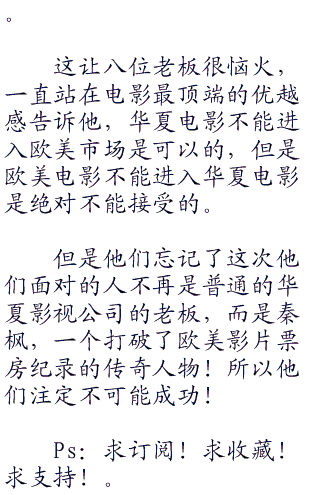 。
这让八位老板很恼火，
一直站在电影最顶端的优越
感告诉他，华夏电影不能进
入欧美市场是可以的，但是
欧美电影不能进入华夏电影
是绝对不能接受的。
但是他们忘记了这次他
们面对的人不再是普通的华
夏影视公司的老板，而是秦
枫，一个打破了欧美影片票
房纪录的传奇人物！所以他
们注定不可能成功！
Ps：求订阅！求收藏！
求支持！。